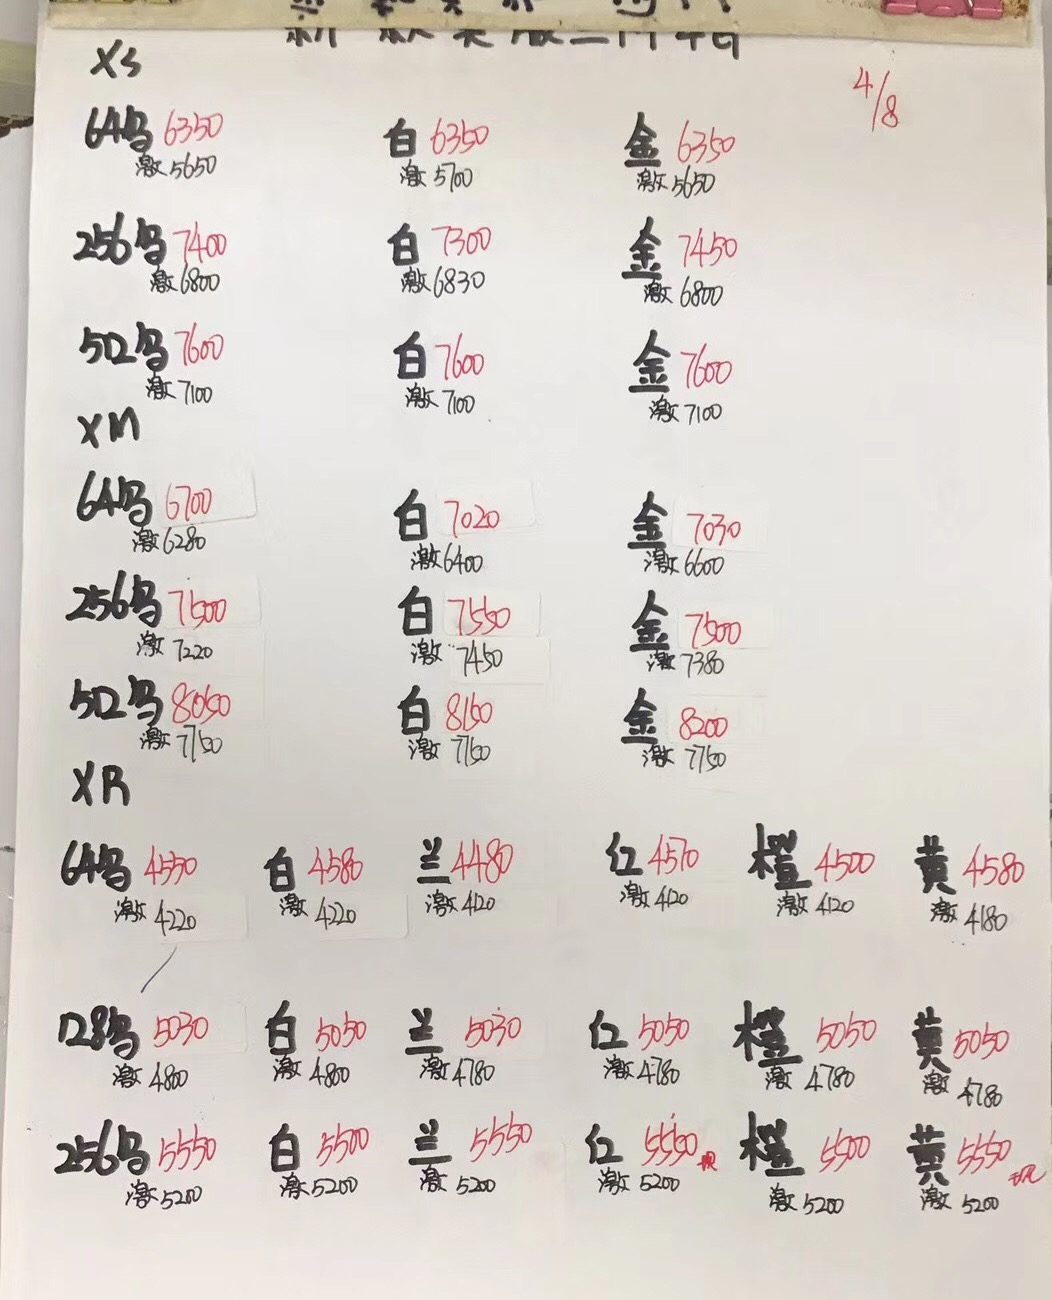 XS
4/8
64乌 6350 白 6350 金 6350
激 5650 激 5700 激 5650
256乌 7400 白 7300 金 7450
激 6800 激 6830 激 6800
512乌 7600 白 7600 金 7600
激 7100 激 7100 激 7100
XM
64乌 6700 白 7020 金 7030
激 6280 激 6400 激 6600
256乌 7500 白 7550 金 7500
激 7220 激 7450 激 7380
512乌 8050 白 8150 金 8200
激 7750 激 7750 激 7750
XR
64乌 4550 白 4580 兰 4480 红 4570 橙 4500 黄 4580
激 4220 激 4220 激 4120 激 4120 激 4120 激 4180
128乌 5030 白 5050 兰 5030 红 5050 橙 5050 黄 5050
激 4800 激 4800 激 4780 激 4780 激 4780 激 4780
256乌 5550 白 5500 兰 5550 红 5550 橙 5500 黄 5550
激 5200 激 5200 激 5200 激 5200 激 5200 激 5200